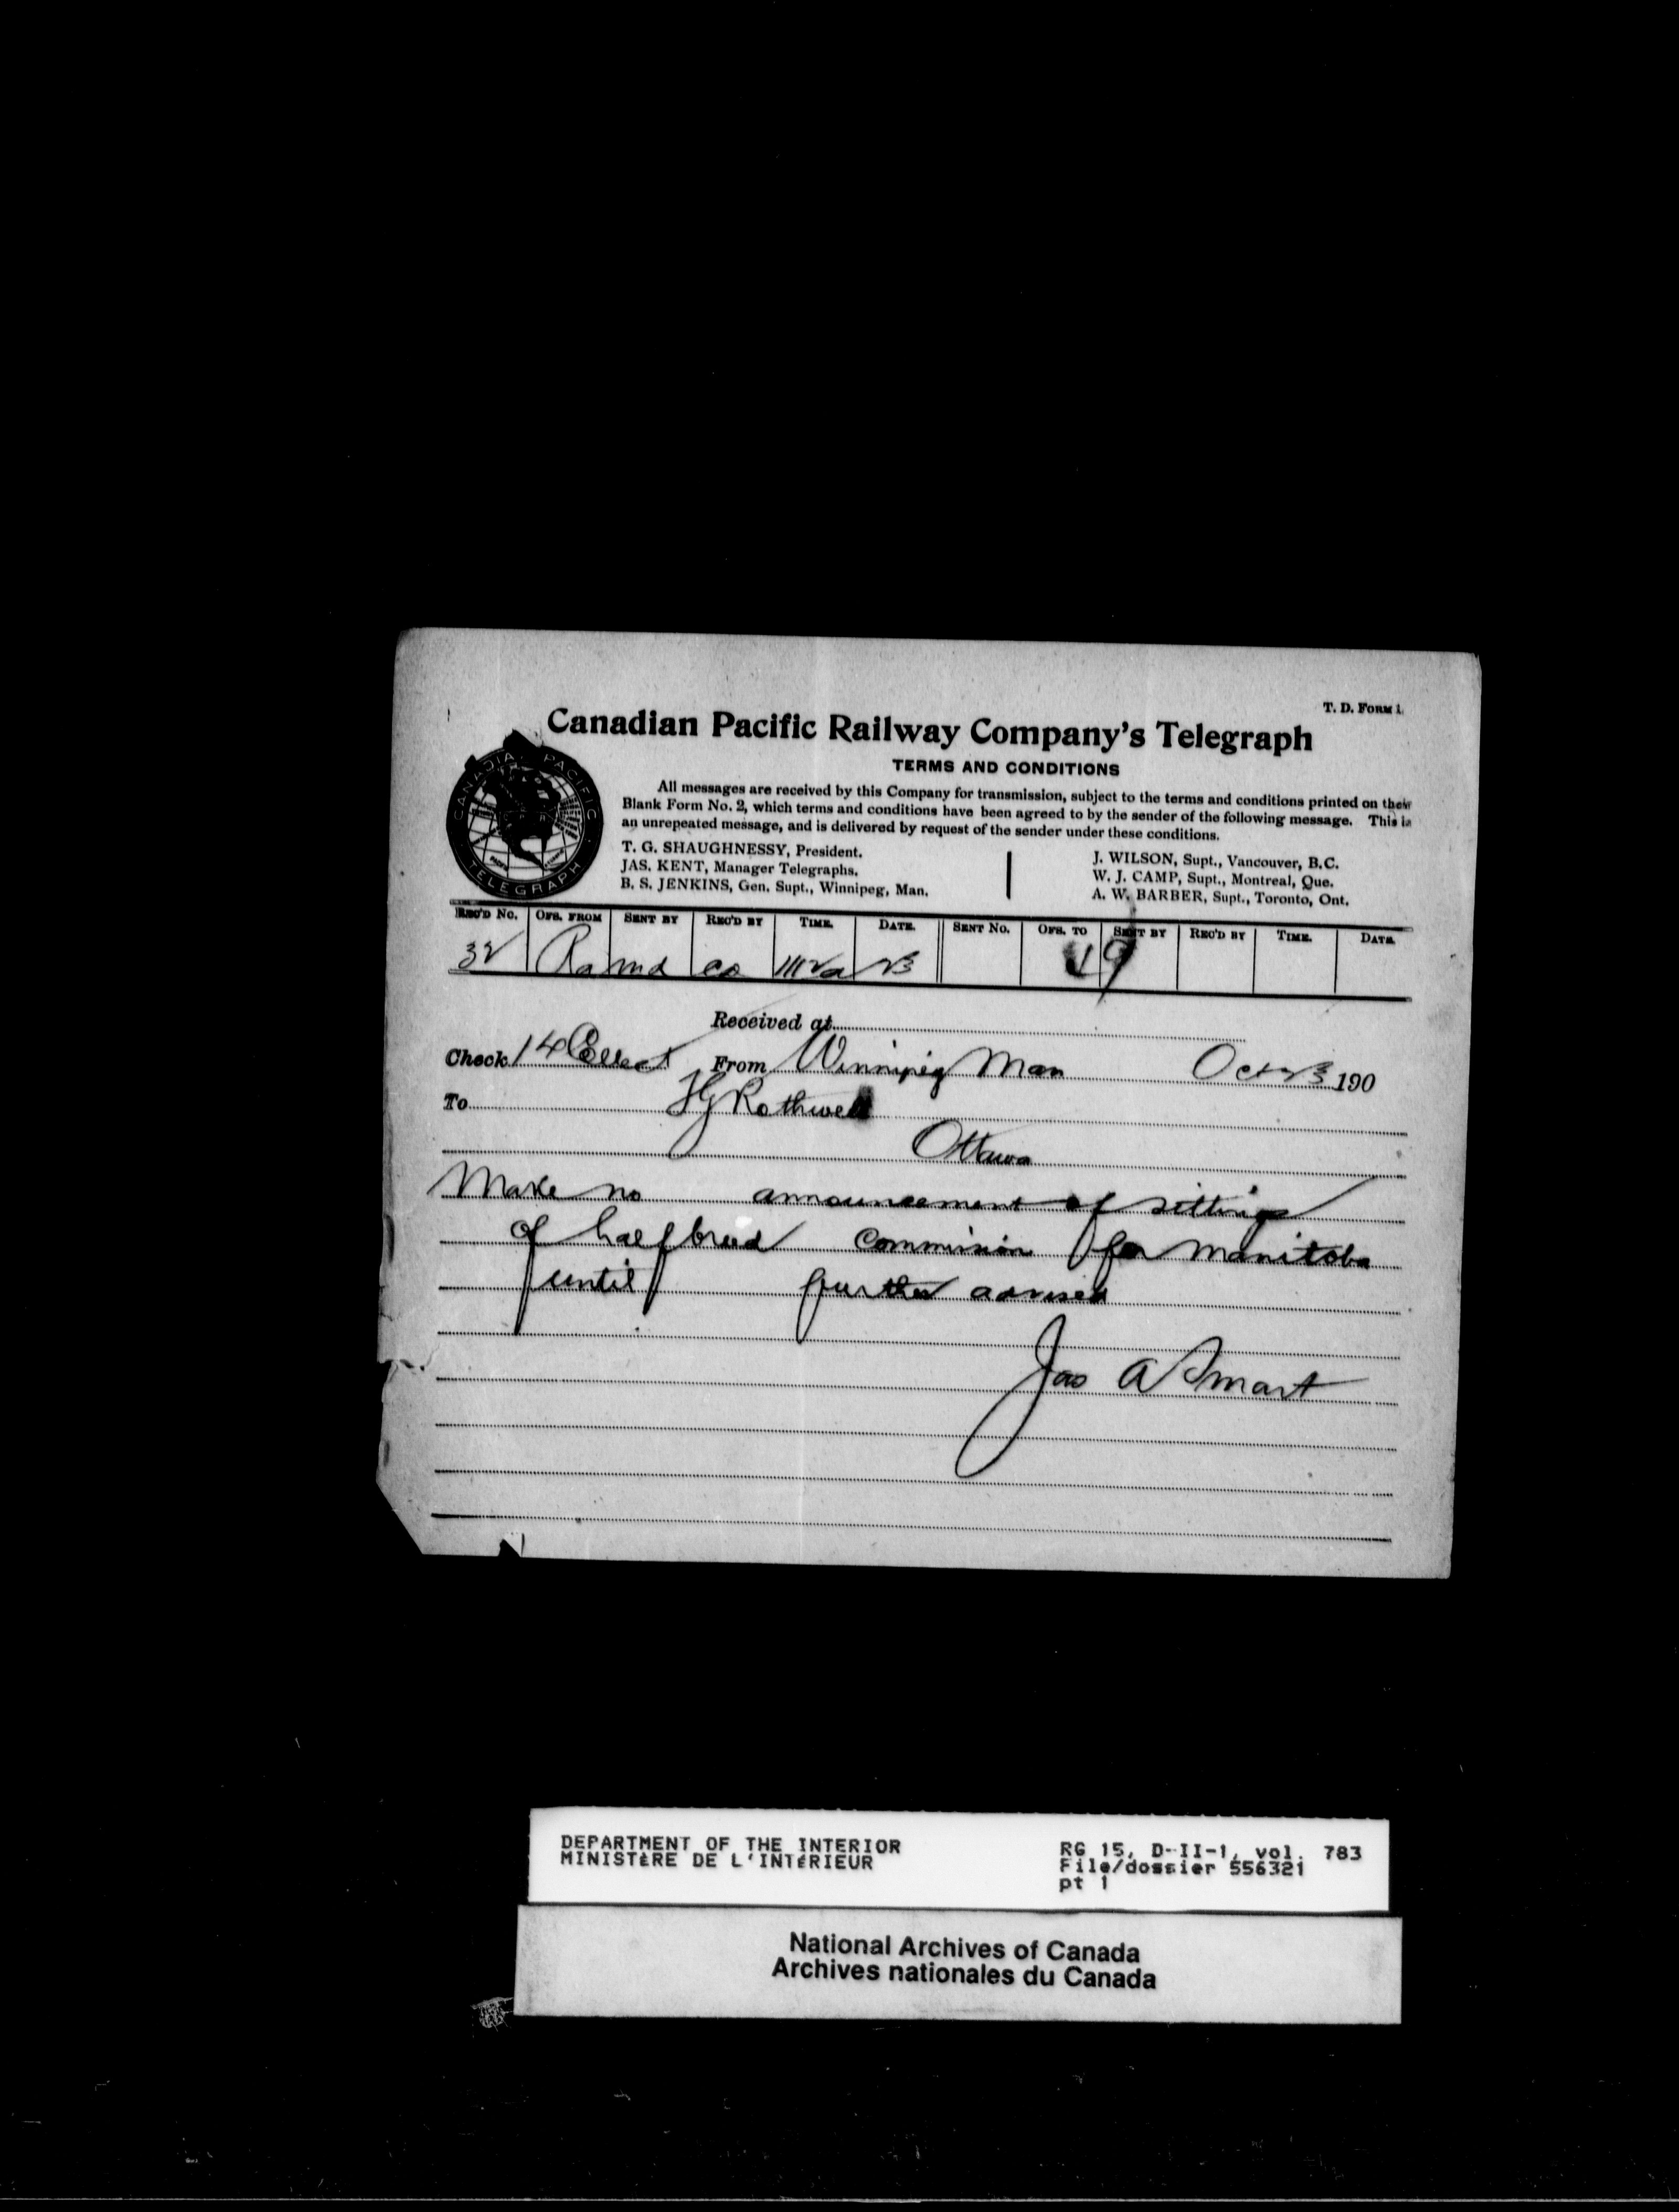 T. D. FORM 1
Canadian Pacific Railway Company's Telegraph
CANADIAN PACIFIC
TELEGRAPH
TERMS AND CONDITIONS
All messages are received by this Company for transmission, subject to the terms and conditions printed on their
Blank Form No. 2, which terms and conditions have been agreed to by the sender of the following message. This is
an unrepeated message, and is delivered by request of the sender under these conditions.
T. G. SHAUGHNESSY, President.
JAS. KENT, Manager Telegraphs.
B. S. JENKINS, Gen. Supt., Winnipeg, Man.
J. WILSON, Supt., Vancouver, B.C.
W. J. CAMP, Supt., Montreal, Que.
A. W. BARBER, Supt., Toronto, Ont.
REC'D NO. OFS. FROM SENT BY REC'D BY TIME. DATE. SENT NO. OFS. TO SENT BY REC'D BY TIME. DATE.
32 Ra md co 1112a 23
Received at
Check 14 Collect From Winnipeg Man Oct 23 190
To H G Rothwell
Ottawa
Make no announcement of sittings
of half breed Commission for Manitoba
until further advised
Jas A Smart
DEPARTMENT OF THE INTERIOR
MINISTÈRE DE L'INTÉRIEUR
RG 15, D-II-1, vol. 783
File/dossier 556321
pt 1
National Archives of Canada
Archives nationales du Canada